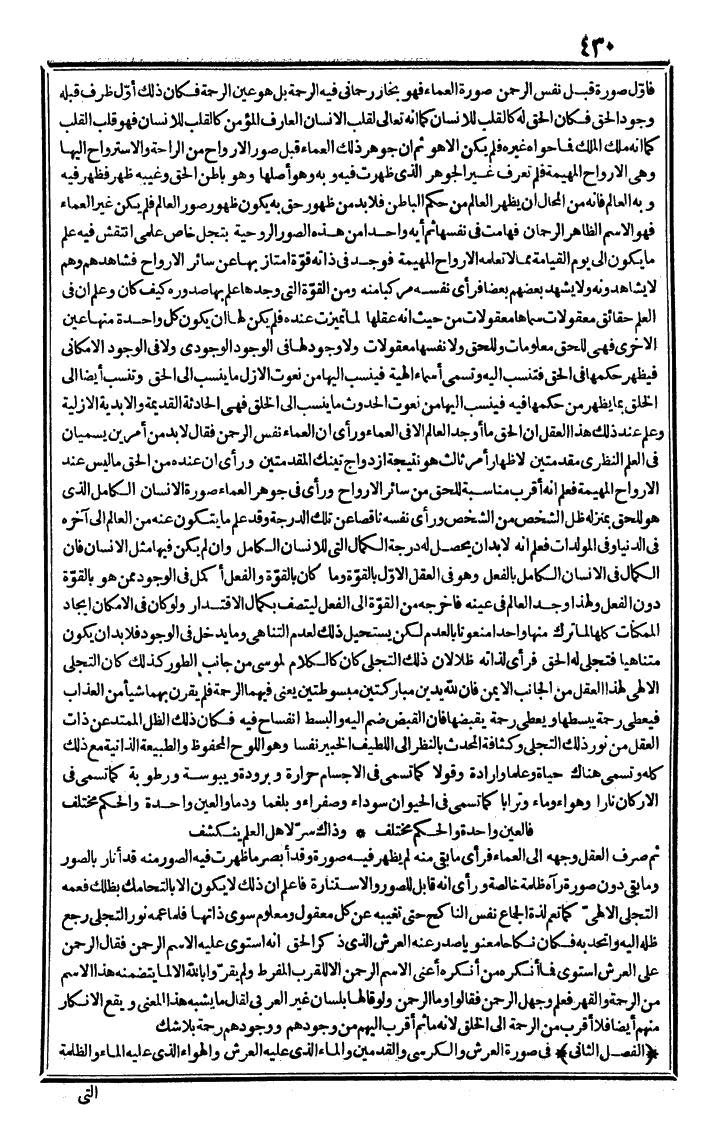 ٤٣٠
فاوّل صورة قبل نفس الرحمن صورة العماء فهو بخار رحمانى فيه الرحمة بل هو عين الرحمة فكان ذلك أوّل ظرف قبله
وجود الحق فكان الحق له كالقلب للانسان كما انه تعالى لقلب الانسان العارف المؤمن كالقلب للانسان فهو قلب القلب
كما انه ملك الملك فما حواه غيره فلم يكن الا هو ثم ان جوهر ذلك العماء قبل صور الارواح من الراحة والاسترواح اليها
وهى الارواح المهيمة فلم تعرف غير الجوهر الذى ظهرت فيه وبه وهو أصلها وهو باطن الحق وغيبه ظهر فظهر فيه
وبه العالم فانه من المحال ان يظهر العالم من حكم الباطن فلابد من ظهور حق به يكون ظهور صور العالم فلم يكن غير العماء
فهو الاسم الظاهر الرحمان فهامت فى نفسها ثم أيه واحدا من هذه الصور الروحية بتجل خاص علمى انتقش فيه علم
ما يكون الى يوم القيامة مما لا تعلمه الارواح المهيمة فوجد فى ذاته قوّة امتاز بها عن سائر الارواح فشاهدهم وهم
لا يشاهدونه ولا يشهد بعضهم بعضا فرأى نفسه مركبا منه ومن القوّة التى وجدها علم بها صدوره كيف كان وعلم ان فى
العلم حقائق معقولات سماها معقولات من حيث انه عقلها لما تميزت عنده فلم يكن لها ان يكون كل واحدة منها عين
الاخرى فهى للحق معلومات وللحق ولانفسها معقولات ولا وجود لها فى الوجود الوجودى ولا فى الوجود الامكانى
فيظهر حكمها فى الحق فتنسب اليه وتسمى أسماء الهية فينسب اليها من نعوت الازل ما ينسب الى الحق وتنسب أيضا الى
الخلق بما يظهر من حكمها فيه فينسب اليها من نعوت الحدوث ما ينسب الى الخلق فهى الحادثة القديمة والابدية الازلية
وعلم عند ذلك هذا العقل ان الحق ما أوجد العالم الا فى العماء ورأى ان العماء نفس الرحمن فقال لابد من أمرين يسميان
فى العلم النظرى مقدمتين لاظهار أمر ثالث هو نتيجة ازدواج تينك المقدمتين ورأى ان عنده من الحق ما ليس عند
الارواح المهيمة فعلم انه أقرب مناسبة للحق من سائر الارواح ورأى فى جوهر العماء صورة الانسان الكامل الذى
هو للحق بمنزله ظل الشخص من الشخص ورأى نفسه ناقصا عن تلك الدرجة وقد علم ما يتكون عنه من العالم الى آخره
فى الدنيا وفى المولدات فعلم انه لابد ان يحصل له درجة الكمال التى للانسان الكامل وان لم يكن فيها مثل الانسان فان
الكمال فى الانسان الكامل بالفعل وهو فى العقل الاوّل بالقوّة وما كان بالقوّة والفعل أكمل فى الوجود ممن هو بالقوّة
دون الفعل ولهذا وجد العالم فى عينه فاخرجه من القوّة الى الفعل ليتصف بكمال الاقتدار ولو كان فى الامكان ايجاد
الممكنات كلها لما ترك منها واحدا منعوتا بالعدم لكن يستحيل ذلك لعدم التناهى وما يدخل فى الوجود فلابد ان يكون
متناهيا فتجلى له الحق فرأى لذاته ظلا لان ذلك التجلى كان كالكلام لموسى من جانب الطور كذلك كان التجلى
الالهى لهذا العقل من الجانب الايمن فان لله يدين مباركتين مبسوطتين يعنى فيهما الرحمة فلم يقرن بهما شيأ من العذاب
فيعطى رحمة يبسطها ويعطى رحمة يقبضها فان القبض ضم اليه والبسط انفساح فيه فكان ذلك الظل الممتد عن ذات
العقل من نور ذلك التجلى وكثافة المحدث بالنظر الى اللطيف الخبير نفسا وهو اللوح المحفوظ والطبيعة الذاتية مع ذلك
كله وتسمى هناك حياة وعلما وارادة وقولا كما تسمى فى الاجسام حرارة وبرودة ويبوسة ورطوبة كما تسمى فى
الاركان نارا وهواء وماء وترابا كما تسمى فى الحيوان سوداء وصفراء وبلغما ودما والعين واحدة والحكم مختلف
فالعين واحدة والحكم مختلف * وذاك سرّ لاهل العلم ينكشف
ثم صرف العقل وجهه الى العماء فرأى ما بقى منه لم يظهر فيه صورة وقد أبصر ما ظهرت فيه الصور منه قد أنار بالصور
وما بقى دون صورة رآه ظلمة خالصة ورأى انه قابل للصور والاستنارة فاعلم ان ذلك لا يكون الا بالتحامك بظلك فعمه
التجلى الالهىّ كما تعم لذة الجماع نفس الناكح حتى تغيبه عن كل معقول ومعلوم سوى ذاتها فلما عمه نور التجلى رجع
ظله اليه واتحد به فكان نكاحا معنويا صدر عنه العرش الذى ذكر الحق انه استوى عليه الاسم الرحمن فقال الرحمن
على العرش استوى فما أنكره من أنكره أعنى الاسم الرحمن الا للقرب المفرط ولم يقرّوا بالله الا لما يتضمنه هذا الاسم
من الرحمة والقهر فعلم وجهل الرحمن فقالوا وما الرحمن ولو قالها بلسان غير العربى لقال ما يشبه هذا المعنى ويقع الانكار
منهم أيضا فلا أقرب من الرحمة الى الخلق لانه ما ثم أقرب اليهم من وجودهم ووجودهم رحمة بلا شك
﴿الفصل الثانى﴾ فى صورة العرش والكرسى والقدمين والماء الذى عليه العرش والهواء الذى عليه الماء والظلمة
التى